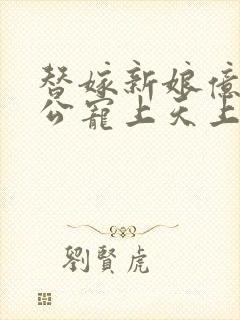 替嫁新娘億
公寵上天上
劉賢虎